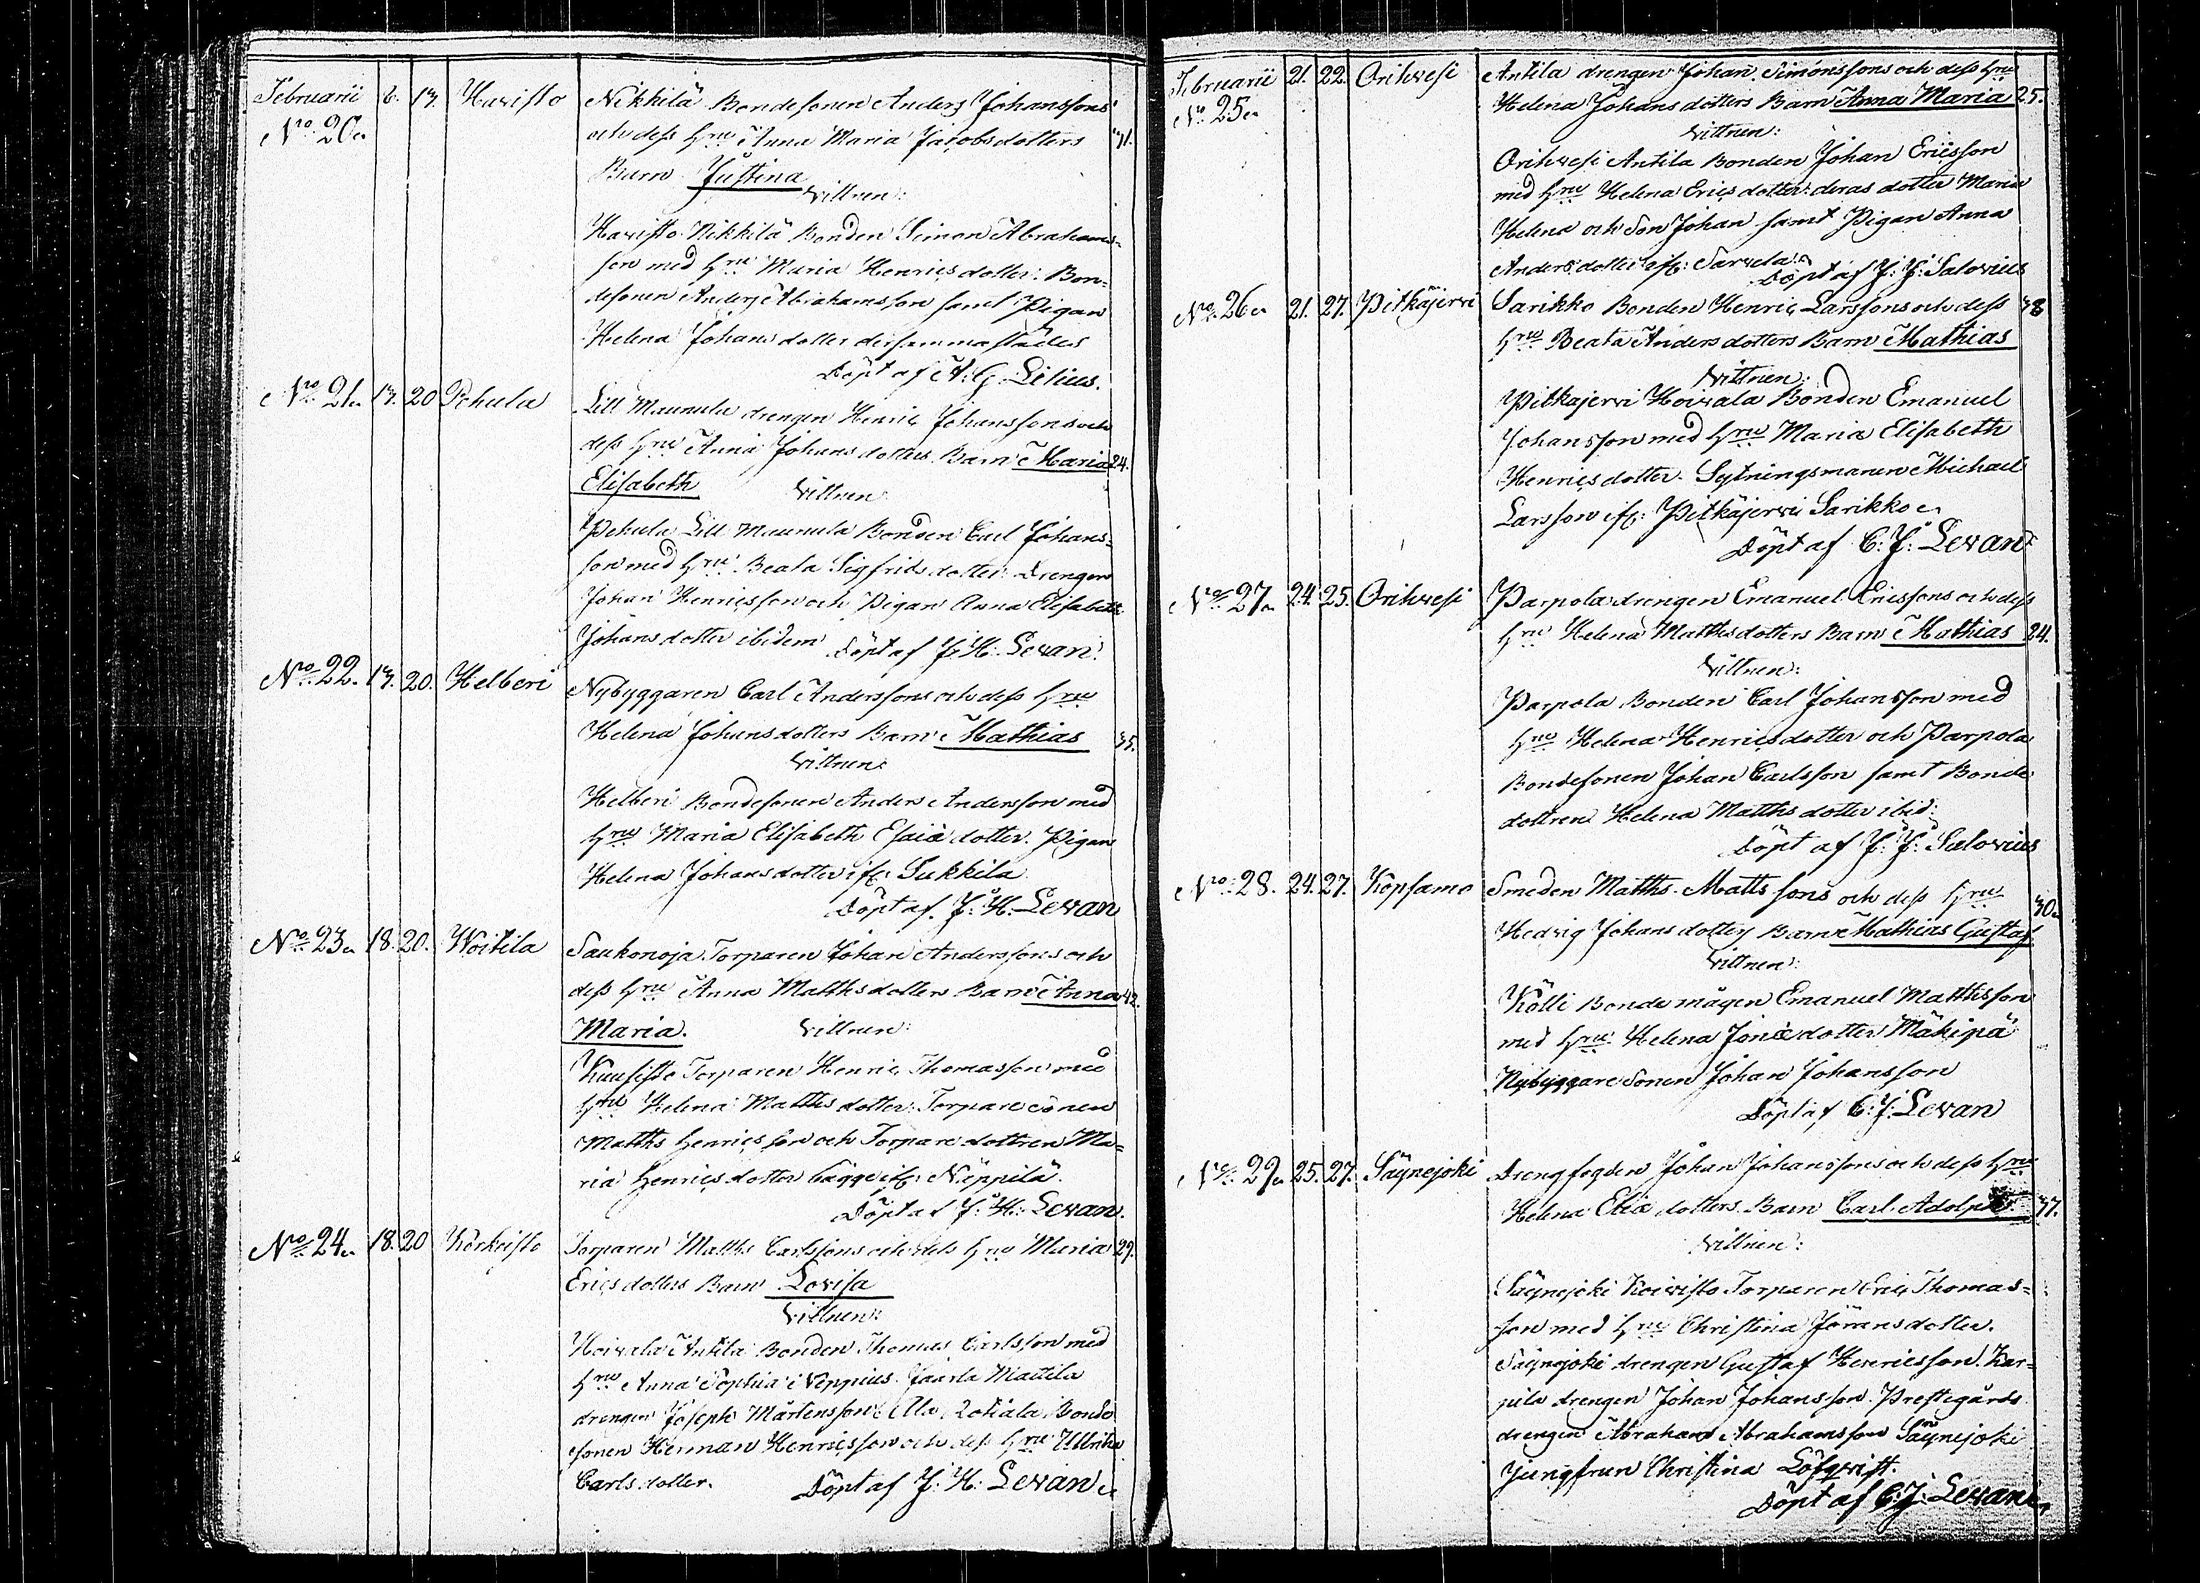 Februarii 6. 13. Haristo Nikkilä Bondesonen Anders Johanssons
No. 20. och dess hru Anna Maria Jacobsdotters 31.
Barn Justina
Vittnen:
Haristo Nikkilä Bonden Simon Abrahams=
son med hru Maria Henricsdotter. Bon=
desonen Anders Abrahamsson samt Pigan
Helena Johansdotter dersammastädes
Döpt af A: G. Lilius.
No. 21. 13. 20 Pehula Lill Maunula drengen Henric Johanssons och
dess hru Anna Johansdotters Barn Maria 24.
Elisabeth Vittnen
Pehula Lill Maunula Bonden Carl Johans=
son med hru Beata Sigfridsdotter. Drengen
Johan Henricsson och Pigan Anna Elisabeth
Johansdotter ibidem Döpt af J. H: Levan.
No. 22. 13. 20. Helberi Nybyggaren Carl Anderssons och dess hru
Helena Johansdotters Barn Mathias 35.
Vittnen:
Helberi Bondesonen Anders Andersson med
hru Maria Elisabeth Esaiædotter. Pigan
Helena Johansdotter ifr. Sukkila
Döpt af J. H. Levan
No. 23. 18. 20. Woitila Saukonoja Torparen Johan Anderssons och
dess hru Anna Matthsdotters Barn Anna 42.
Maria. Vittnen:
Kuusisto Torparen Henric Thomasson med
hru Helena Matthsdotter. Torparesonen
Matths Henricsson och Torparedottren Ma=
ria Henricsdotter bägge ifr. Näppilä.
Döpt af J. H: Levan.
No. 24. 18. 20 Körkeisto Torparen Matths Carlssons och dess hru Maria 29.
Ericsdotters Barn Lovisa
Vittnen:
Hoivala Antila Bonden Thomas Carlsson med
hru Anna Sophia Neppius. Jaarla Mattila
drengen Joseph Mårtensson. Alla Rokala Bonde
sonen Herman Henricsson och dess hru Ullrika
Carlsdotter. Döpt af J. H. Levan
Februarii 21. 22. Orihvesi Antila drengen Johan Simonssons och dess hru
No. 25. Helena Johansdotters Barn Anna Maria 25.
Vittnen:
Orihvesi Antila Bonden Johan Ericsson
med hru Helena Ericsdotter. deras dotter Maria
Helena och Son Johan samt Pigan Anna
Andersdotter ifr: Sarvela.
Döpt af J. J. Salovius
No. 26. 21. 27. Pitkäjervi Sarikko Bonden Henric Larssons och dess 38
hru Beata Andersdotters Barn Mathias
Vittnen:
Pitkajervi Hoivala Bonden Emanuel
Johansson med hru Maria Elisabeth
Henricsdotter. Sytningsmannen Michael
Larsson ifr: Pitkäjervi Sarikko
Döpt af C: J: Levan
No. 27. 24. 25. Orihvesi Parpola drengen Emanuel Ericssons och dess
hru Helena Matthsdotters Barn Mathias 24.
Vittnen:
Parpola Bonden Carl Johansson med
hru Helena Henricsdotter och Parpola
Bondesonen Johan Carlsson samt Bonde
dottren Helena Matthsdotter ibid:
Döpt af J: J: Salovius
No. 28. 24. 27. Kopsamo Smeden Matths Mattssons och dess hru
Hedvig Johansdotters Barn Mathias Gustaf 30.
Vittnen:
Kölli Bondemågen Emanuel Matthsson
med hru Helena Jonædotter Mäkipä
Nybyggaresonen Johan Johansson
Döpt af C: J. Levan
No. 29. 25. 27. Säynejoki Drengfogden Johan Johanssons och dess hru
Helena Eliædotters Barn Carl Adolph 37.
Vittnen:
Säynejoki Koivisto Torparen Eric Thomas=
son med hru Christina Jöransdotter.
Säynejoki drengen Gustaf Henricsson. Kar=
pila drengen Johan Johansson. Prestegårds
drengen Abraham Abrahamsson Säynejoki
Jungfrun Christina Löfqvist.
Döpt af C: J. Levan